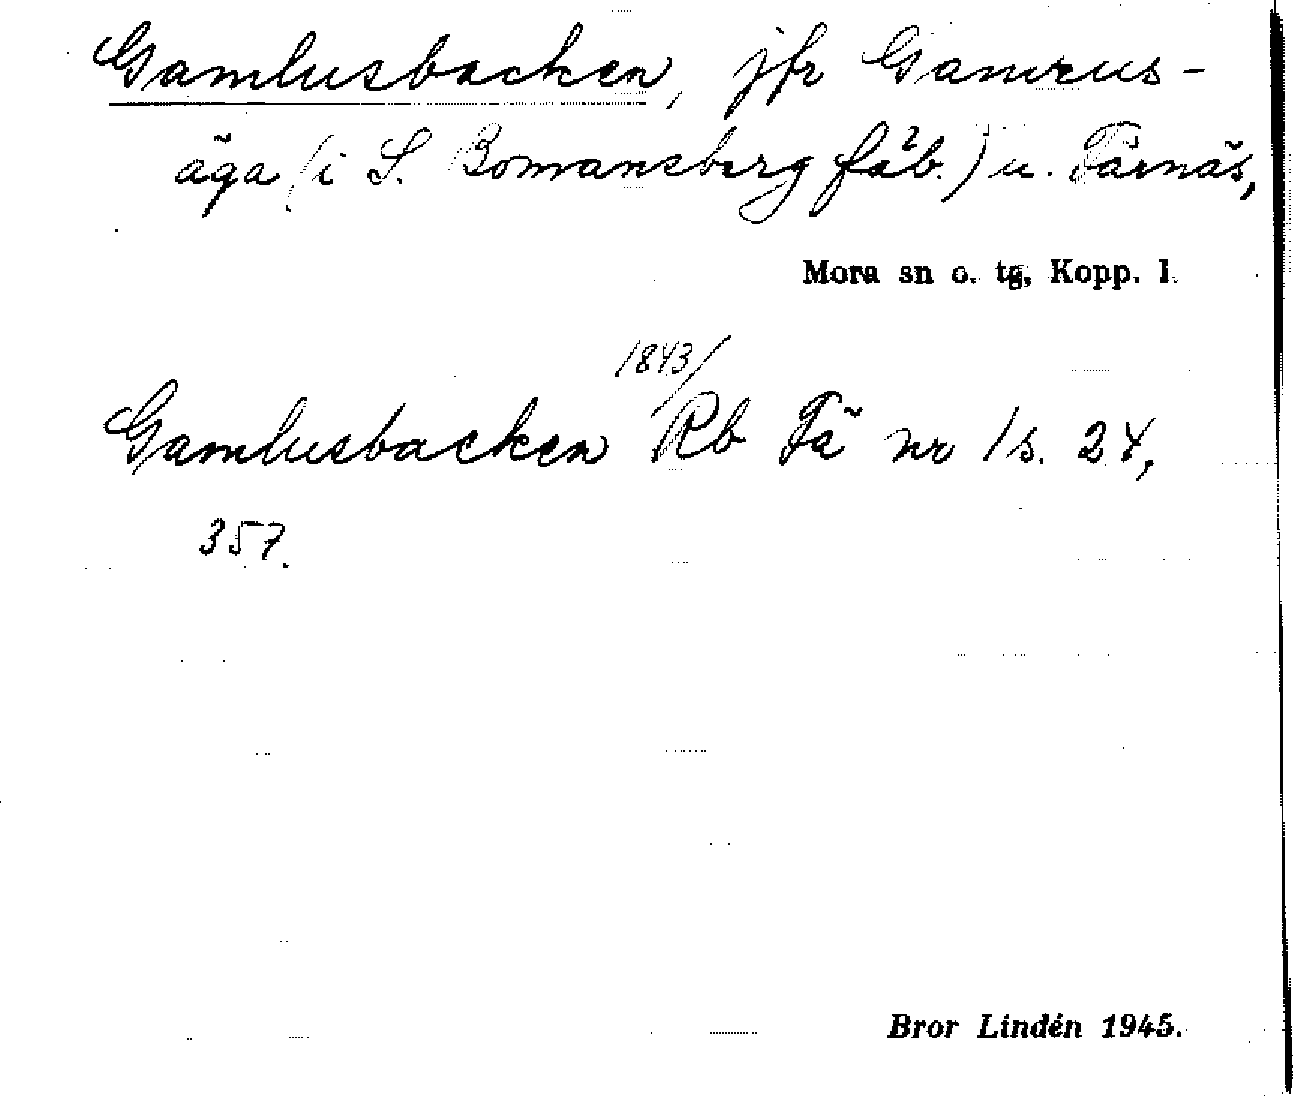 Gamlusbacken, jfr Gamrus-
äga (i S. Bomansberg fäb.) u. Färnäs,
Mora sn o. tg, Kopp. l.
1843/
Gamlusbacken Rb Fä nr 1 s. 24,
357.
Bror Lindén 1945.